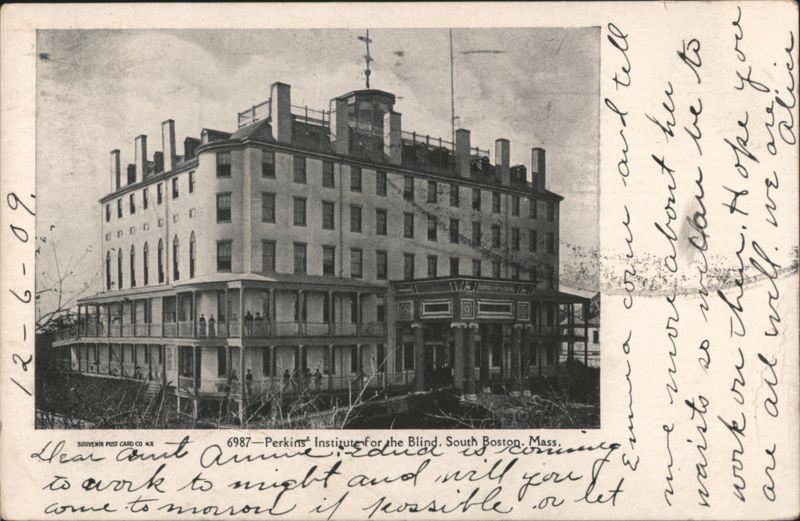 12-6-09.
SOUVENIR POST CARD CO. N.Y.
6987—Perkins' Institute for the Blind, South Boston, Mass.
Dear aunt Annie. Edna is coming
to work to night and will you
come to morrow if possible or let
Emma come and tell
me more about her
waists so we can be to
work on them. Hope you
are all well. we are
Alice